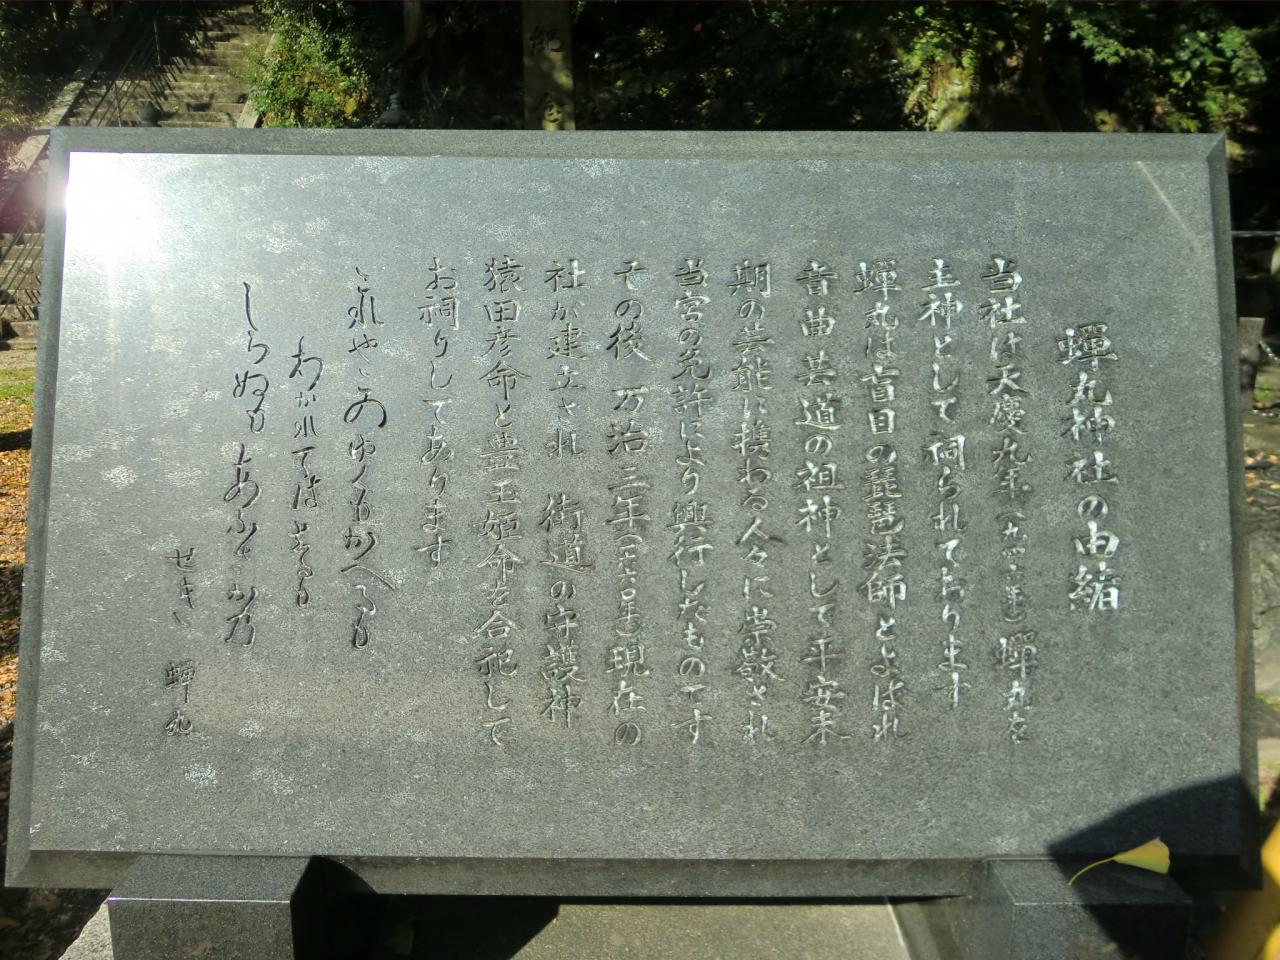 蟬丸神社の由緒
当社は天慶九年（九四六年）蟬丸を
主神として祠られております
蟬丸は盲目の琵琶法師とよばれ
音曲芸道の祖神として平安末
期の芸能に携わる人々に崇敬され
当宮の免許により興行したものです
その後 万治三年（一六六〇年）現在の
社が建立され 街道の守護神
猿田彦命と豊玉姫命を合祀して
お祠りしてあります
これやこのゆくもかへるも
わかれてはしるも
しらぬもあふさかの
せき 蟬丸